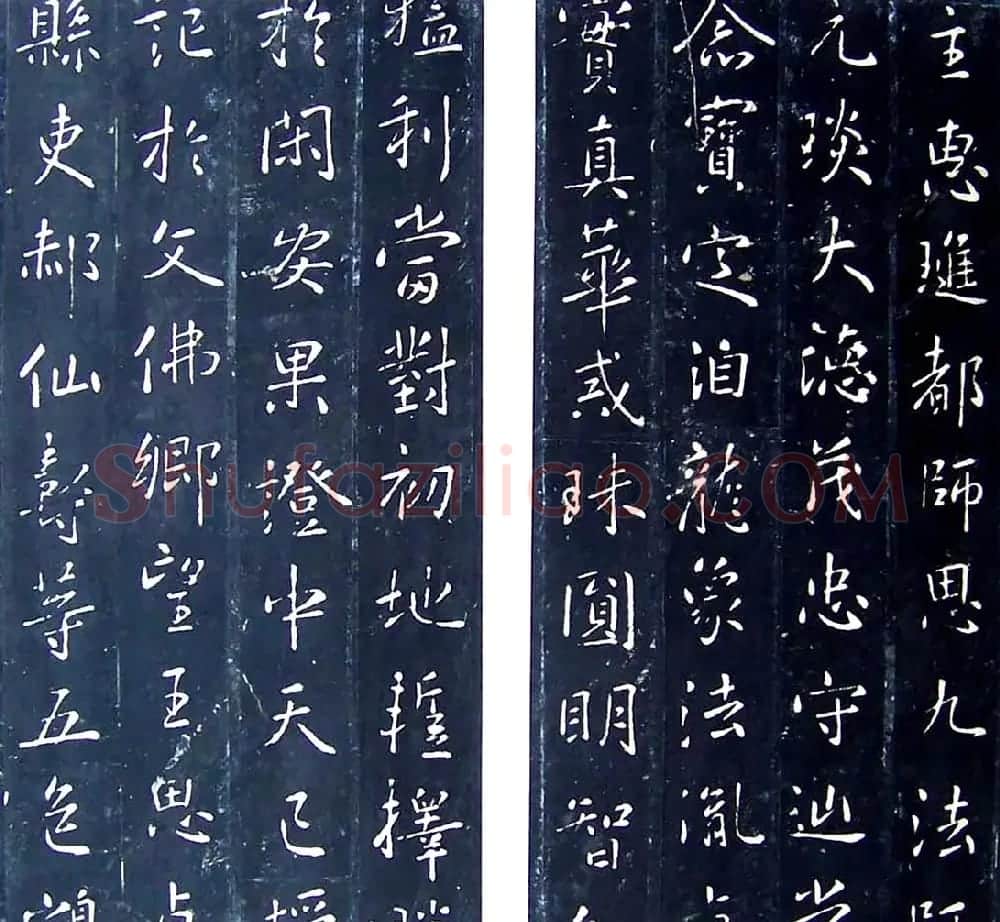 主惠璡都師思九法師
元琰大德茂忠守
念寶定泊龍象法胤
寶真華或珠圓明智
利當對初地擇
於閑安果證中天已授
記於文佛鄉望王思貞
縣吏郝仙壽等五邑